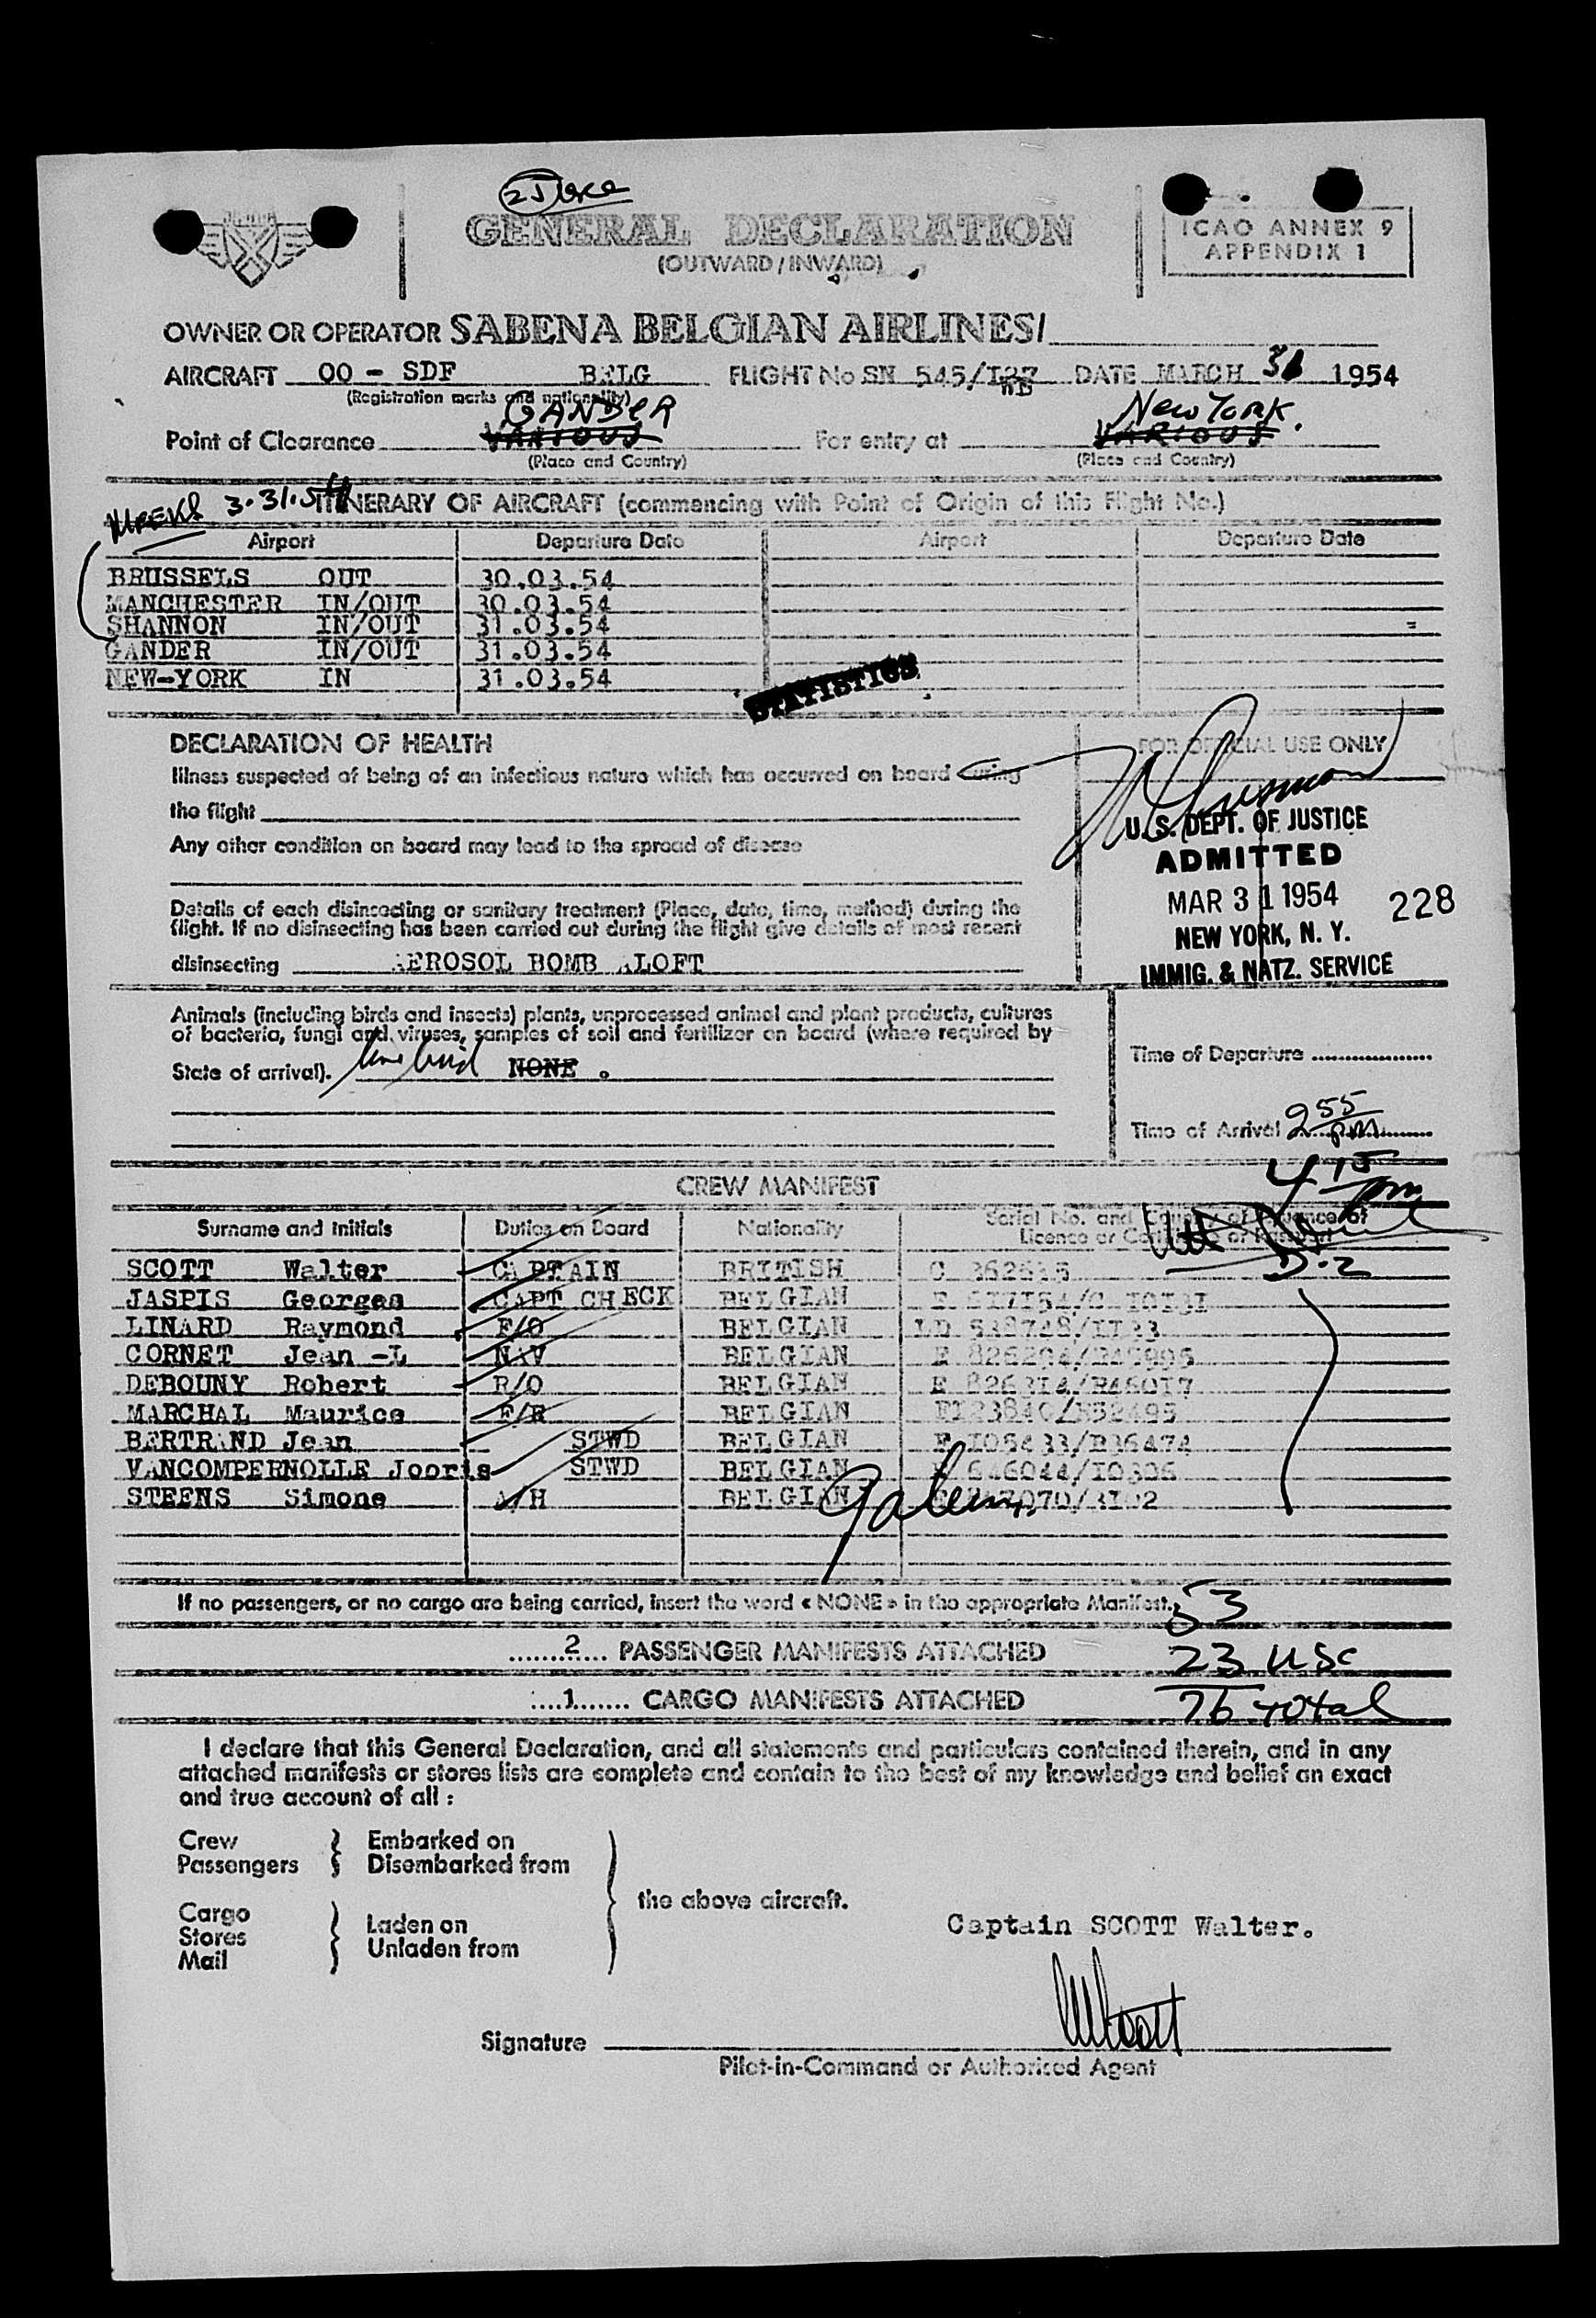 GENERAL DECLARATION
(OUTWARD / INWARD)
ICAO ANNEX 9
APPENDIX 1
OWNER OR OPERATOR SABENA BELGIAN AIRLINES/
AIRCRAFT OO - SDF BELG FLIGHT No SN 545/ DATE MARCH 31 1954
(Registration marks and nationality)
GANDER New York.
Point of Clearance VARIOUS For entry at VARIOUS
(Place and Country) (Place and Country)
3.31.54 ITINERARY OF AIRCRAFT (commencing with Point of Origin of this Flight No.)
Airport Departure Date Airport Departure Date
BRUSSELS OUT 30.03.54
MANCHESTER IN/OUT 30.03.54
SHANNON IN/OUT 31.03.54
GANDER IN/OUT 31.03.54
NEW-YORK IN 31.03.54
STATISTICS
DECLARATION OF HEALTH
Illness suspected of being of an infectious nature which has occurred on board during
the flight
Any other condition on board may lead to the spread of disease
Details of each disinsecting or sanitary treatment (Place, date, time, method) during the
flight. If no disinsecting has been carried out during the flight give details of most recent
disinsecting AEROSOL BOMB ALOFT
FOR OFFICIAL USE ONLY
U.S. DEPT. OF JUSTICE
ADMITTED
MAR 31 1954 228
NEW YORK, N. Y.
IMMIG. & NATZ. SERVICE
Animals (including birds and insects) plants, unprocessed animal and plant products, cultures
of bacteria, fungi and viruses, samples of soil and fertilizer on board (where required by
State of arrival). NONE .
Time of Departure
Time of Arrival 2 55 pm
4 15 pm
CREW MANIFEST
Surname and Initials Duties on Board Nationality Serial No. and Country of Issuance of
Licence or Certificate or Passport
D-2
SCOTT Walter CAPTAIN BRITISH
JASPIS Georges CAPT CHECK BELGIAN
LINARD Raymond F/O BELGIAN
CORNET Jean -L NAV BELGIAN
DEBOUNY Robert R/O BELGIAN
MARCHAL Maurice F/E BELGIAN
BERTRAND Jean STWD BELGIAN
VANCOMPERNOLLE Jooris STWD BELGIAN
STEENS Simone A/H BELGIAN
If no passengers, or no cargo are being carried, insert the word « NONE » in the appropriate Manifest.
53
2 PASSENGER MANIFESTS ATTACHED 23 USC
1 CARGO MANIFESTS ATTACHED 76 total
I declare that this General Declaration, and all statements and particulars contained therein, and in any
attached manifests or stores lists are complete and contain to the best of my knowledge and belief an exact
and true account of all :
Crew Embarked on
Passengers Disembarked from
the above aircraft.
Cargo
Stores Laden on
Mail Unladen from
Captain SCOTT Walter.
WScott
Signature
Pilot-in-Command or Authorised Agent